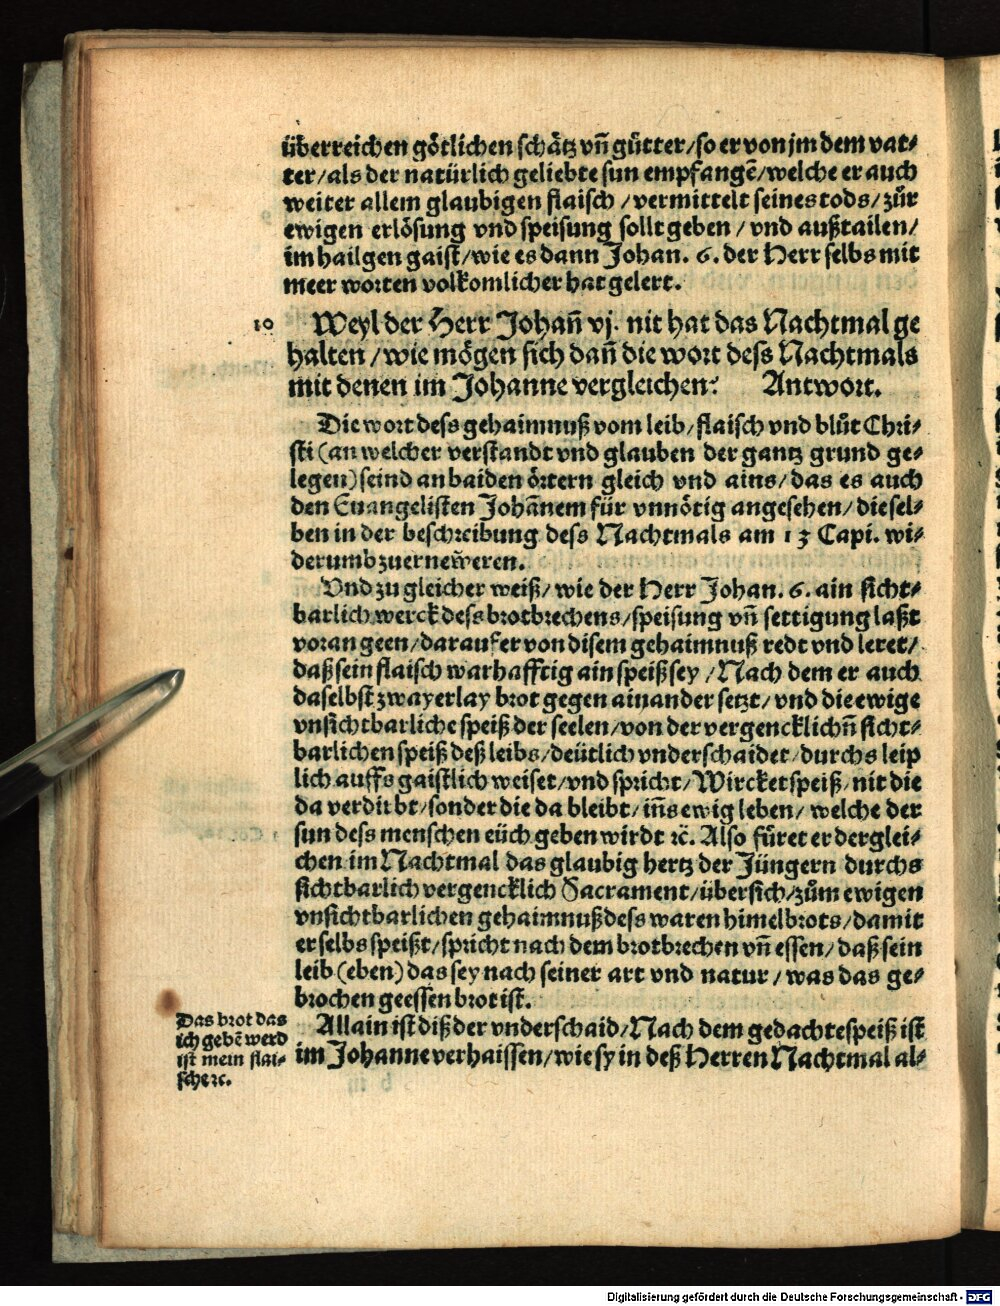 überreichen götlichen schätz vñ gütter/so er von jm dem vat⸗
ter/als der natürlich geliebte sun empfangẽ/welche er auch
weiter allem glaubigen flaisch/vermittelt seines tods/zůr
ewigen erlösung vnd speisung sollt geben/vnd außtailen/
im hailgen gaist/wie es dann Johan. 6. der Herr selbs mit
meer worten volkomlicher hat gelert.
10 Weyl der Herr Johañ vj. nit hat das Nachtmal ge
halten/wie mögen sich dañ die wort dess Nachtmals
mit denen im Johanne vergleichen? Antwort.
Die wort dess gehaimnuß vom leib/flaisch vnd blůt Chri⸗
sti (an welcher verstandt vnd glauben der gantz grund ge⸗
legen) seind an baiden örtern gleich vnd ains/das es auch
den Euangelisten Johãnem für vnnötig angesehen/diesel⸗
ben in der beschreibung dess Nachtmals am 13 Capi. wi⸗
derumb zuerneẅeren.
Vnd zu gleicher weiß/wie der Herr Johan. 6. ain sicht⸗
barlich werck dess brotbrechens/speisung vñ settigung laßt
voran geen/darauf er von disem gehaimnuß redt vnd leret/
daß sein flaisch warhafftig ain speiß sey/Nach dem er auch
daselbst zwayerlay brot gegen ainander setzt/vnd die ewige
vnsichtbarliche speiß der seelen/von der vergencklichñ sicht⸗
barlichen speiß deß leibs/deütlich vnderschaidet/durchs leip
lich auffs gaistlich weiset/vnd spricht/Wircket speiß/nit die
da verdirbt/sonder die da bleibt/iñs ewig leben/welche der
sun dess menschen eüch geben wirdt ꝛc. Also füret er derglei⸗
chen im Nachtmal das glaubig hertz der Jüngern durchs
sichtbarlich vergencklich Sacrament/übersich/zům ewigen
vnsichtbarlichen gehaimnuß dess waren himelbrots/damit
er selbs speißt/spricht nach dem brotbrechen vñ essen/daß sein
leib (eben) das sey nach seiner art vnd natur/was das ge⸗
brochen geessen brot ist.
Das brot das
ich gebẽ werd
ist mein flai⸗
sch ꝛc.
Allain ist diß der vnderschaid/Nach dem gedachte speiß ist
im Johanne verhaissen/wie sy in deß Herren Nachtmal al⸗
Digitalisierung gefördert durch die Deutsche Forschungsgemeinschaft - DFG